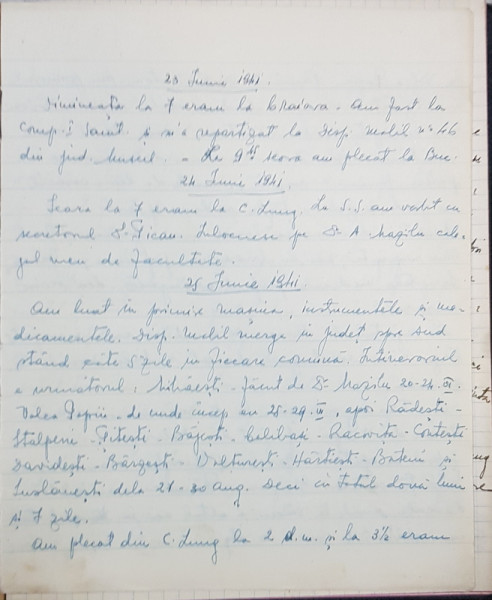 23 Iunie 1941.
Dimineața la 7 eram la Craiova. Am fost la
comp. I Sanit. și m'a repartizat la Disp. mobil nº 46
din jud. Muscel. - La 9 seara am plecat la Buc.
24 Iunie 1941
Seara la 7 eram la C. Lung. La S.S. am vorbit cu
secretarul Dl Pican. Înlocuesc pe Dr A. Mazilu cole-
gul meu de facultate.
25 Iunie 1941
Am luat în primire mașina, instrumentele și me-
dicamentele. Disp. mobil merge în județ spre sud
stând câte 5 zile în fiecare comună. Itinerariul
e următorul: Mihăești - făcut de Dr Mazilu 20-24.VI.
Valea Popii - de unde încep eu 25-29.VI, apoi Rădești -
Stâlpeni - Țițești - Băjești - Colibași - Racovița - Contești
Davidești - Bârzești - Vulturești - Hârtiești - Boteni și
Suslănești dela 27-30 aug. Deci cu totul două luni
și 7 zile.
Am plecat din C. Lung la 2 d.m. și la 3½ eram